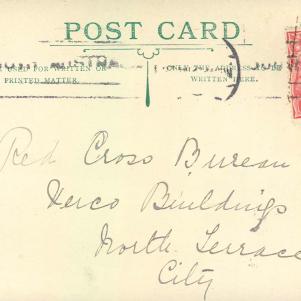 POST CARD
FOR WRITTEN OR
PRINTED MATTER.
ONLY THE ADDRESS TO BE
WRITTEN HERE.
Red Cross Bureau
Verco Buildings
North Terrace
City